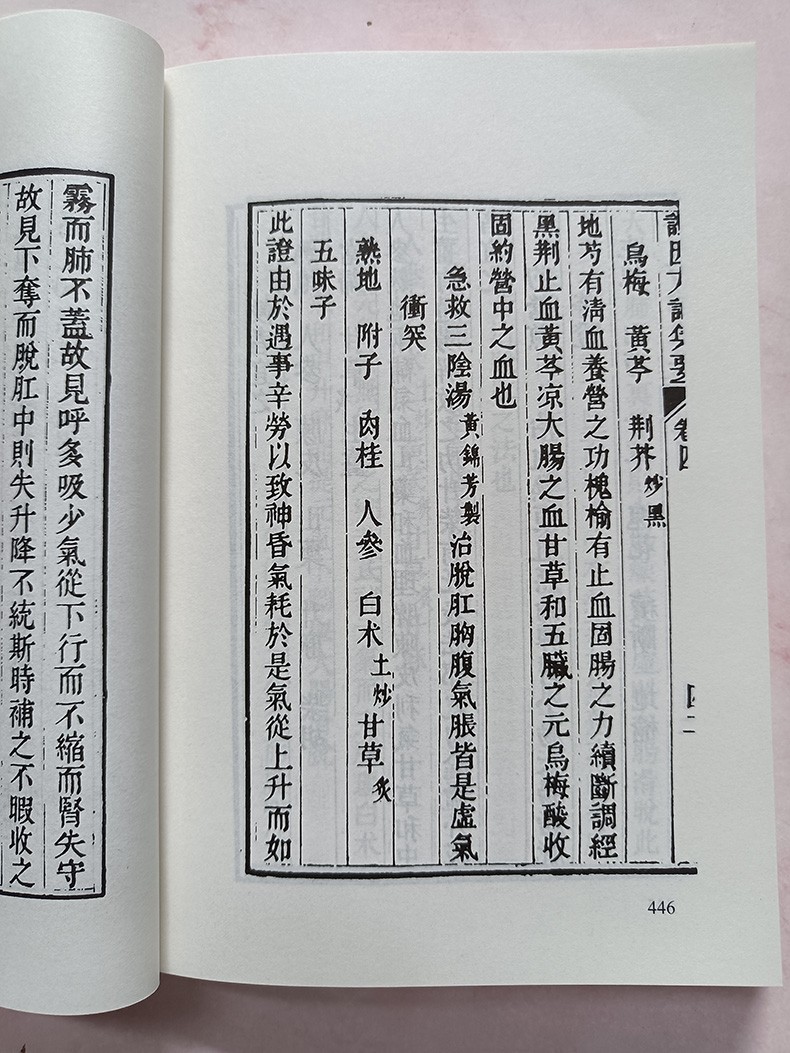 卷四
四二
烏梅 黃芩 荆芥炒黑
地芍有清血養營之功槐榆有止血固腸之力續斷調經
黑荆止血黃芩凉大腸之血甘草和五臟之元烏梅酸收
固約營中之血也
急救三陰湯黃錦芳製治脫肛胸腹氣脹皆是虛氣
衝突
熟地 附子 肉桂 人參 白朮土炒甘草炙
五味子
此證由於遇事辛勞以致神昏氣耗於是氣從上升而如
446
霧而肺不蓋故見呼多吸少氣從下行而不縮而腎失守
故見下奪而脫肛中則失升降不統斯時補之不暇收之